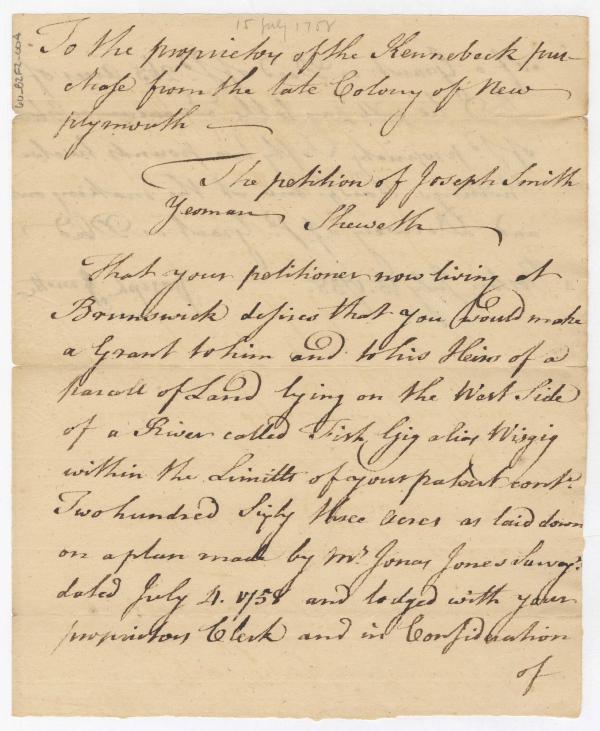 15 July 1758
To the proprietors of the Kennebeck pur-
chase from the late Colony of New
plymouth
The petition of Joseph Smith
Yeoman Sheweth
That your petitioner now living at
Brunswick desires that you would make
a Grant to him and to his Heirs of a
parcell of Land lying on the West Side
of a River called Fish Gig alias Wisgig
within the Limitts of your patent cont.
Two hundred Sixty three acres as laid down
on a plan made by Mr. Jonas Jones Survey.
dated July 4. 1758 and lodged with your
proprietors Clerk and in Consideration
of